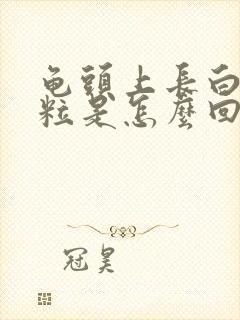 龟頭上長白
粒是怎麼回
冠昊